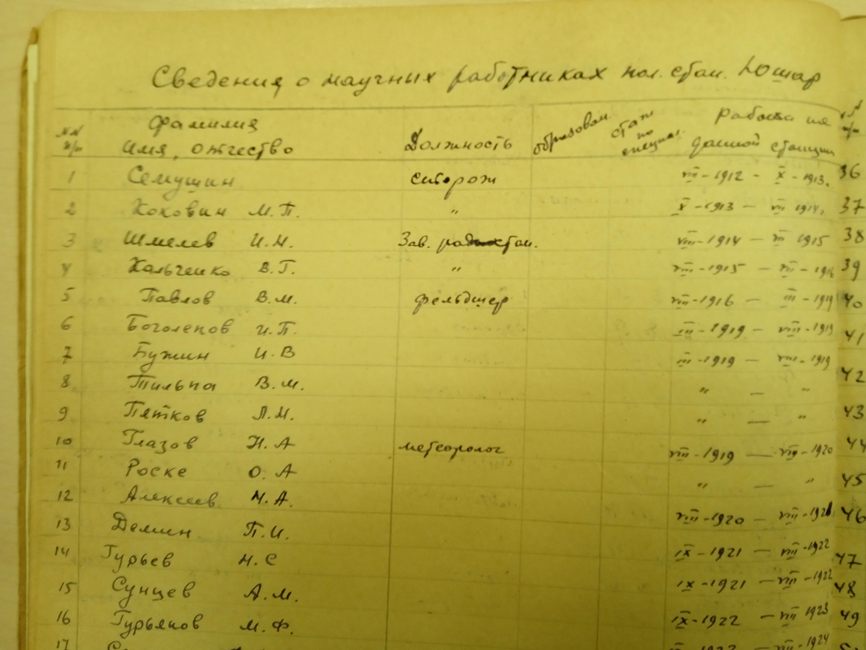 Сведения о научных работниках пол. стан. Юшар
№№ п/п фамилия имя, отчество Должность образован. стаж по специал. Работа на данной станции
1 Семушин сторож VIII-1912 - X-1913. 36
2 Коковин М.П. " X-1913 - VIII 1914. 37
3 Шмелев И.Н. Зав. радиостан. VIII-1914 - VII 1915 38
4 Кальченко В.Г. " VIII-1915 - VII-1916 39
5 Павлов В.М. фельдшер VII-1916 - III-1919 40
6 Боголепов И.П. III-1919 - VIII-1919 41
7 Бужин И.В III-1919 - VIII-1919
8 В.М. " - " 42
9 Пятков Л.Н. " - " 43
10 Глазов Н.А метеоролог VIII-1919 - VIII-1920 44
11 Роске О.А " - " 45
12 Алексеев Н.А. VIII-1920 - VIII-1921 46
13 Демин П.И. IX-1921 - VIII-1922
14 Гурьев Н.С IX-1921 - VIII-1922 47
15 Сунцев А.М. 48
16 Гурьянов М.Ф. IX-1922 - VIII 1923 49
17 VIII-1924